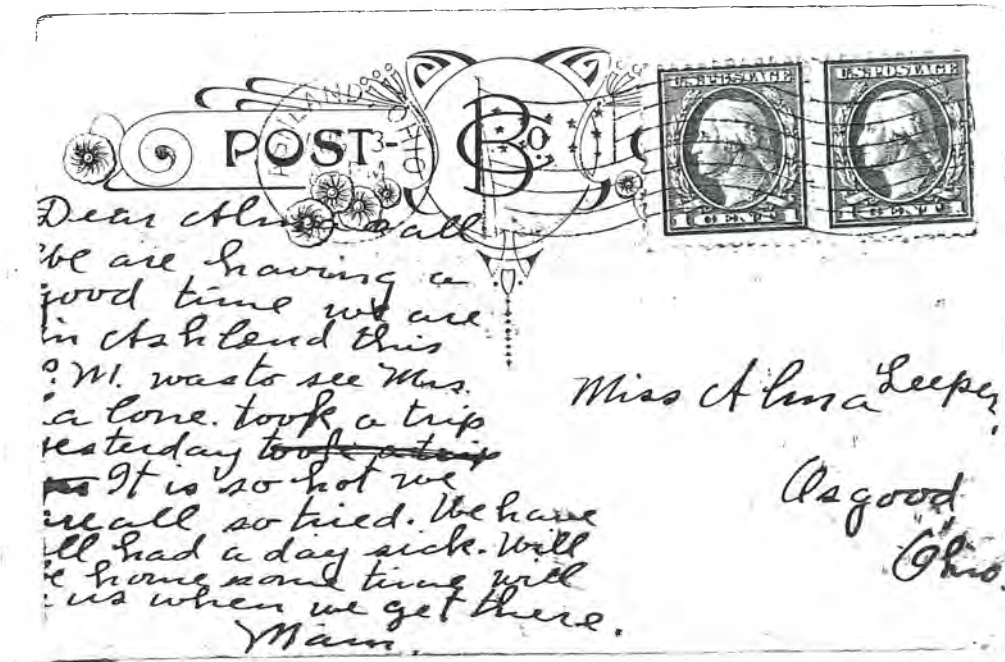 POST- CARD
U.S. POSTAGE
U.S. POSTAGE
1 CENT 1
1 CENT 1
ASHLAND OHIO
Dear Alma & all
We are having a
good time we are
in Ashland this
P. M. was to see Mrs.
a lone. took a trip
yesterday took a trip
It is so hot we
are all so tired. We have
all had a day sick. Will
be home some time will
us when we get there.
Mam.
Miss Alma Leeper,
Osgood
Ohio.